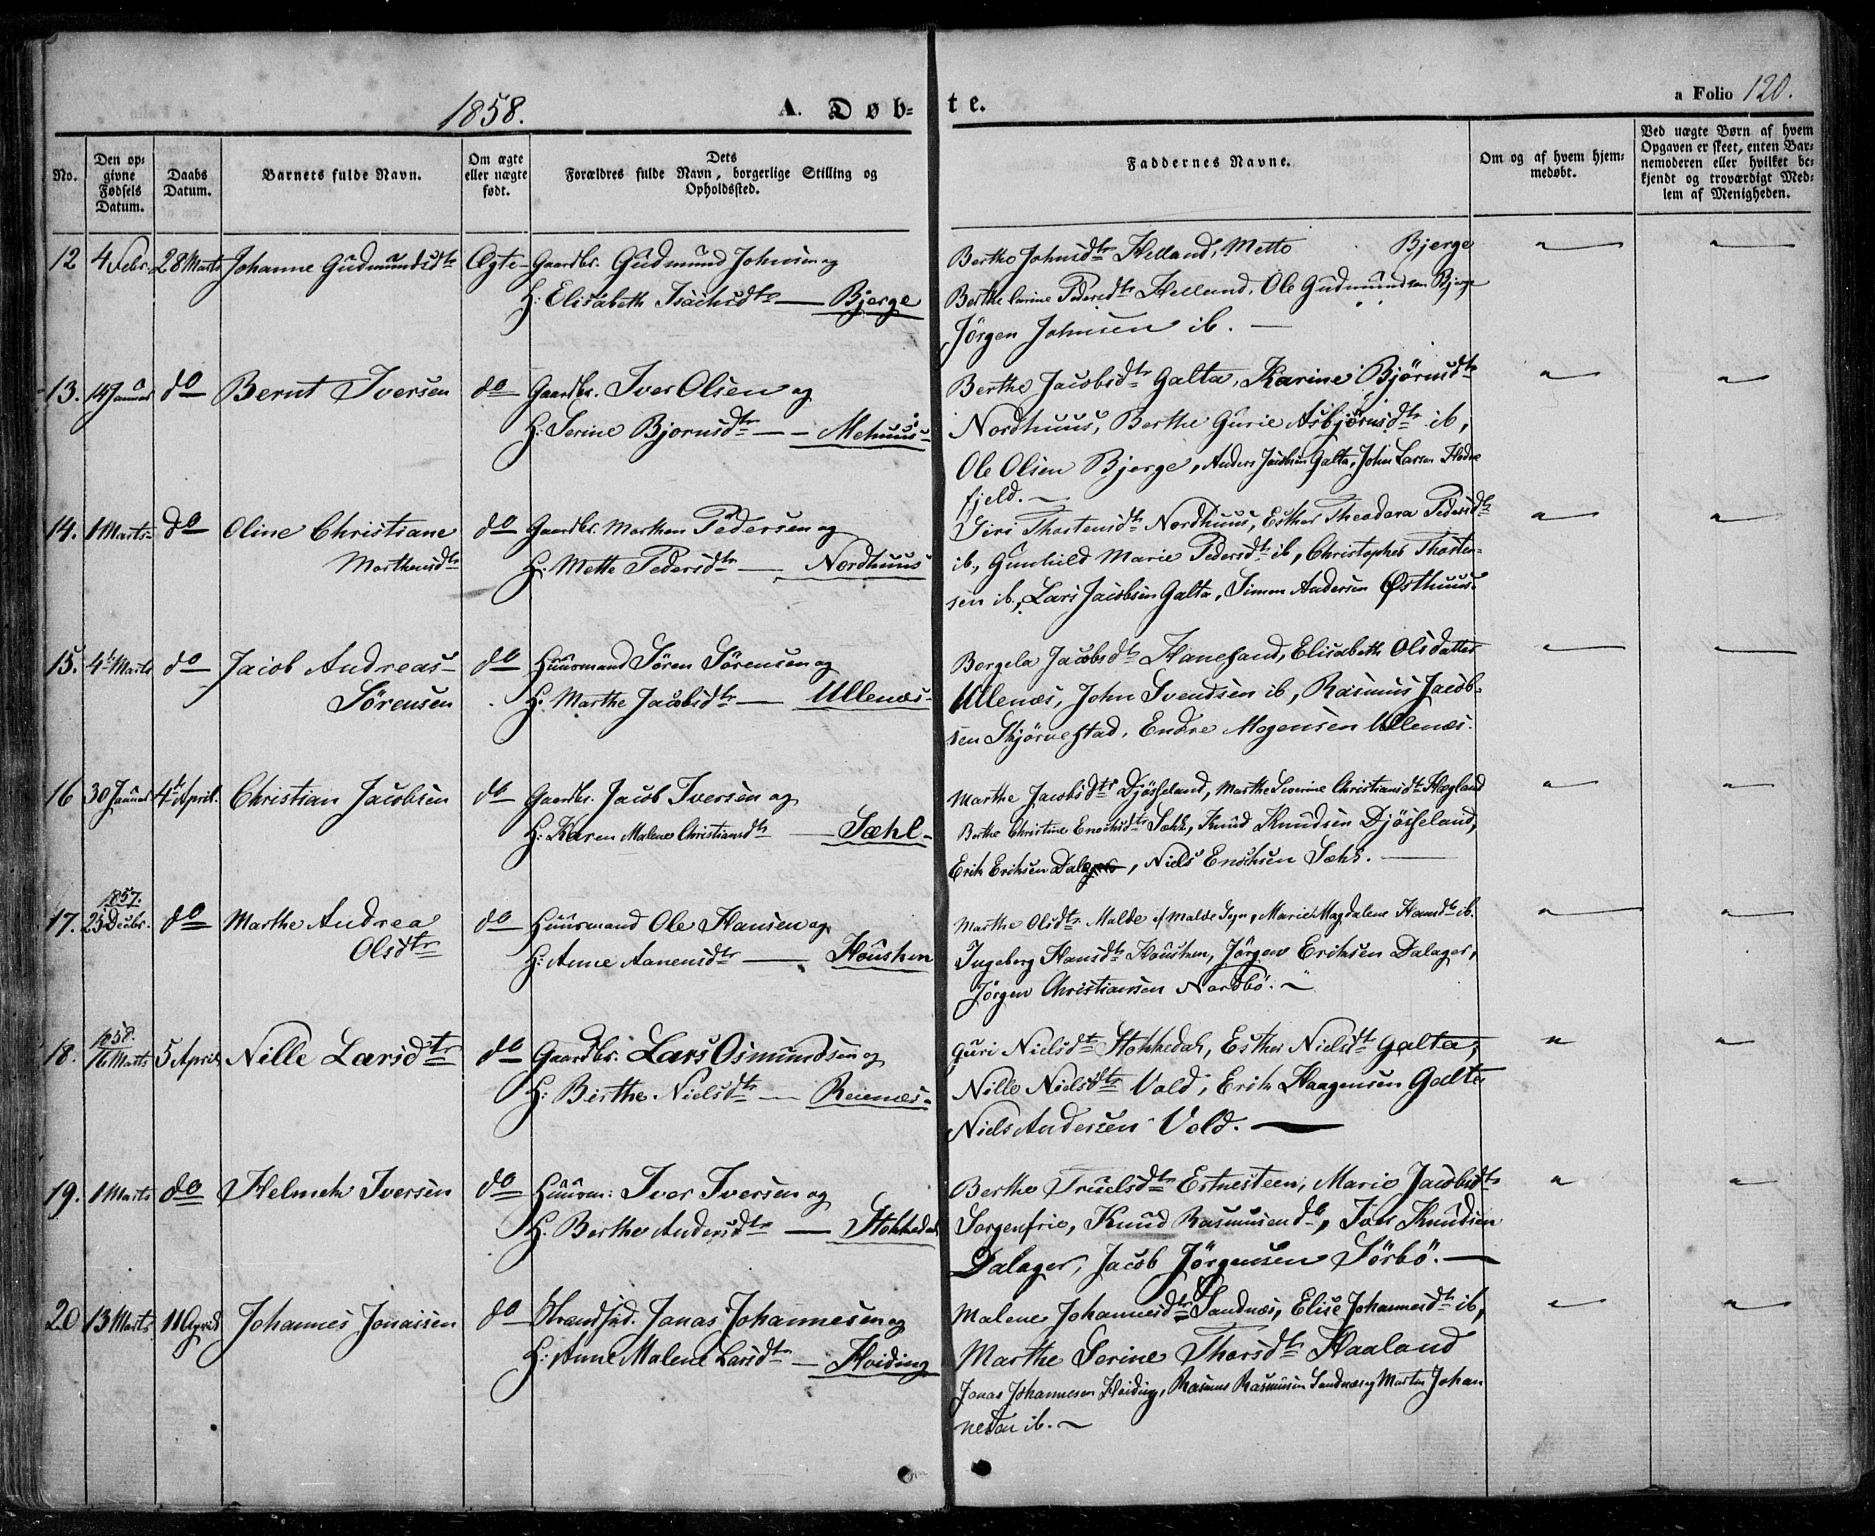 1858.
A. Døb-
te.
a Folio 120.
No.
Den op-
givne
Fødsels
Datum.
Daabs
Datum.
Barnets fulde Navn.
Om ægte
eller uægte
født.
Dets
Forældres fulde Navn, borgerlige Stilling og
Opholdssted.
Faddernes Navne.
Om og af hvem hjem-
medøbt.
Ved uægte Børn af hvem
Opgaven er skeet, enten Bar-
nemoderen eller hvilket be-
kjendt og troværdigt Med-
lem af Menigheden.
12 4 Febr. 28 Marts Johanne Gudmundsdtr Ægte Gaardbr. Gudmund Johnsen og
H: Elisabeth Isachsdtr — Bjerge
Berthe Johnsdtr Helland, Mette Bjerge
Berthe Carine Pedersdtr Helland, Ole Gudmundsen Bjerge
Jörgen Johnsen ib. —
13. 14 Januar do Bernt Iversen do Gaardbr. Iver Olsen og
H: Serine Bjornsdtr — Mehuus
Berthe Jacobsdtr Galta, Karine Bjørnsdtr
Nordhuus, Berthe Gurie Asbjørnsdtr ib,
Ole Olsen Bjerge, Anders Jacobsen Galta, John Larsen Hodne
fjeld. —
14. 1 Marts do Oline Christiane do Gaardbr. Morthen Pedersen og
Morthensdtr H: Mette Pedersdtr — Nordhuus
Siri Thostensdtr Nordhuus, Esther Theodora Pedersdtr
ib, Gunhild Marie Pedersdtr ib, Christopher Thosten-
sen ib, Lars Jacobsen Galta, Simon Andersen Østhuus.
15. 4de Marts do Jacob Andreas do Huusmand Søren Sørensen og
Sørensen H. Marthe Jacobsdtr — Ullenæs
Borgela Jacobsdtr Hanesand, Elisabeth Olsdatter
Ullenæs, John Svendsen ib, Rasmus Jacob-
sen Skjörvestad, Endre Mogensen Ullenæs.
16 30 Januar 4de April. Christian Jacobsen do Gaardbr. Jacob Iversen og
H: Karen Malene Christiansdtr — Sæhl
Marthe Jacobsdtr Djösseland, Marthe Severine Christiansdtr Hægland
Berthe Christine Enochsdtr Sæhl, Knud Knudsen Djösseland,
Erik Eriksen Dalager, Niels Enochsen Sæhl. —
1857.
17. 25 Decbr. do Marthe Andrea do Huusmand Ole Hansen og
Olsdtr H: Anne Aanensdtr — Housken
Marthe Olsdtr Malde i Malde Sogn, Marie Magdalene Hansdtr ib.
Ingeborg Hansdtr Housken, Jörgen Eriksen Dalager,
Jörgen Christiansen Nordbö. —
1858.
18. 16 Marts 5 April Nille Larsdtr do Gaardbr. Lars Osmundsen og
H: Birthe Nielsdtr — Reienæs
Guri Nielsdtr Stokkedal, Esther Nielsdtr Galta,
Nille Nielsdtr Vold, Erik Haagensen Galta
Niels Andersen Vold. —
19. 1 Marts do Helmek Iversen do Huusm: Iver Iversen og
H. Berthe Andersdtr — Stokkedal
Berthe Truelsdtr Estnesteen, Marie Jacobsdtr
Sorgenfrie, Knud Rasmusen do, Iver Knudsen
Dalager, Jacob Jörgensen Sörbö. —
20 13 Marts 11 April Johannes Jonassen do Strandsid. Jonas Johannesen og
H: Anne Malene Larsdtr — Hviding
Malene Johannesdtr Sandnæs, Elise Johannesdtr ib,
Marthe Serine Thorsdtr Haaland
Jonas Johannesen Hviding, Rasmus Rasmusen Sandnæs og Morten Johan
nesen ib. —